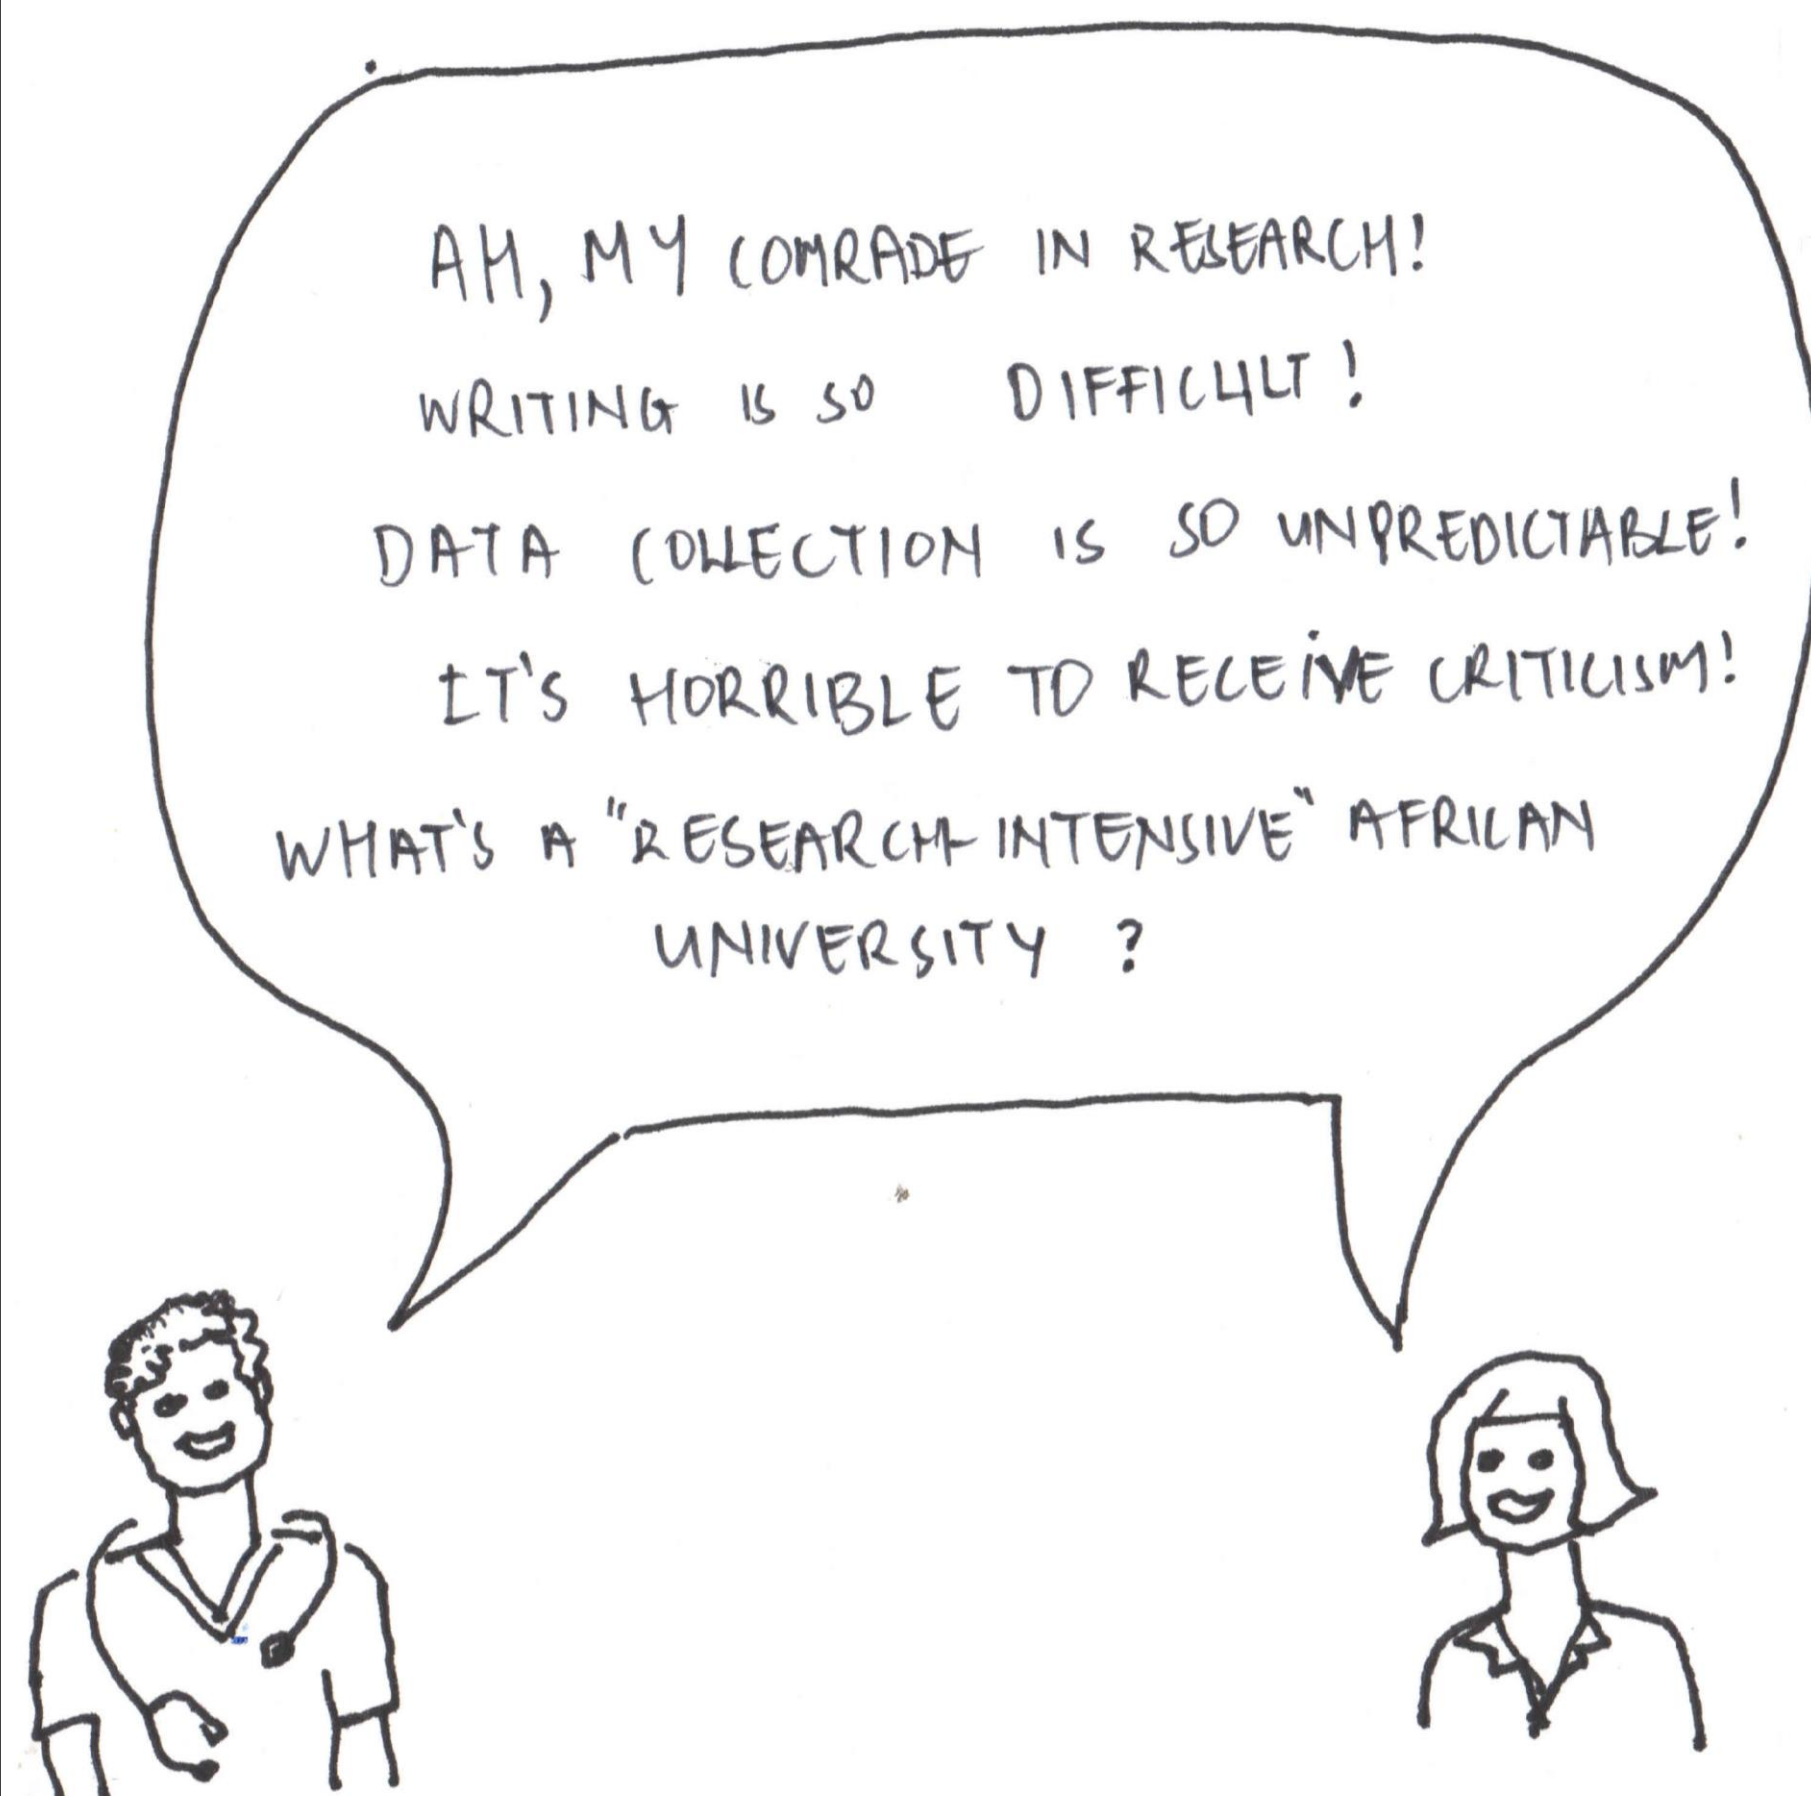 AH, MY COMRADE IN RESEARCH!
WRITING IS SO DIFFICULT!
DATA COLLECTION IS SO UNPREDICTABLE!
IT'S HORRIBLE TO RECEIVE CRITICISM!
WHAT'S A "RESEARCH-INTENSIVE" AFRICAN
UNIVERSITY ?